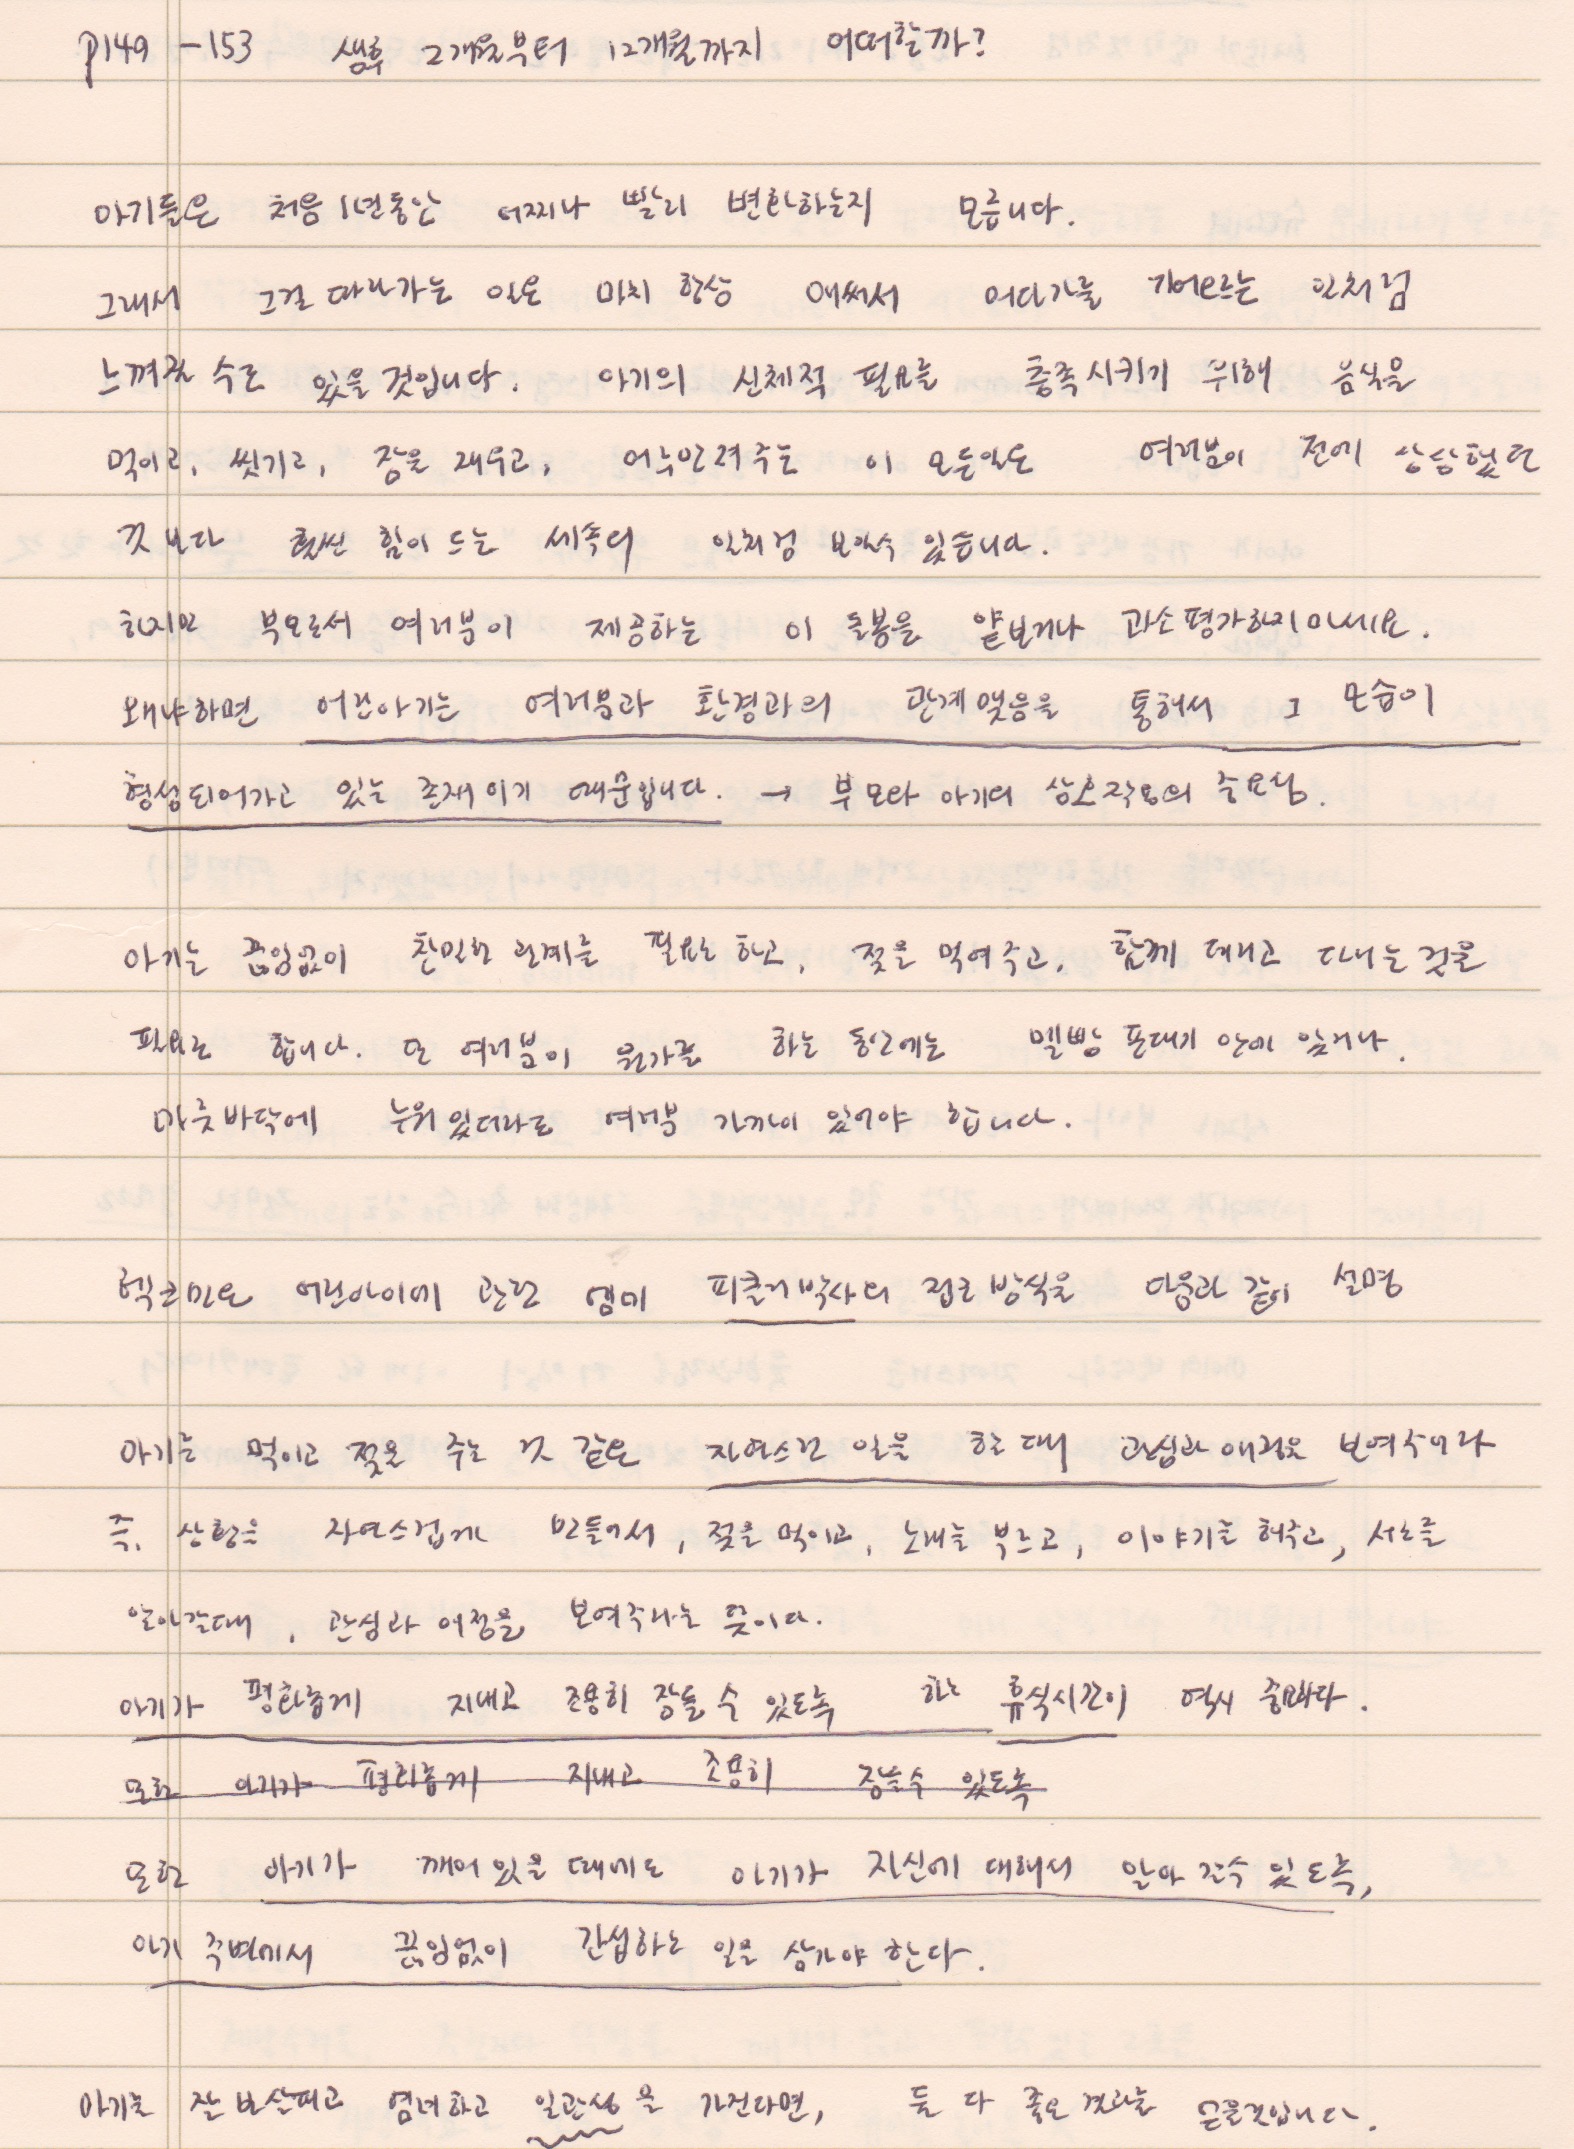 p149 -153 생후 2개월부터 12개월까지 어떠할까?
아기들은 처음 1년동안 어찌나 빨리 변화하는지 모릅니다.
그래서 그걸 따라가는 일은 마치 항상 애써서 어딘가를 기어오르는 일처럼
느껴질 수도 있을 것입니다. 아기의 신체적 필요를 충족시키기 위해 음식을
먹이고, 씻기고, 잠을 재우고, 어누만져주는 이 모든일은 여러분이 전에 상상했던
것 보다 훨씬 힘이 드는 세속의 일처럼 보일수 있습니다.
하지만 부모로서 여러분이 제공하는 이 돌봄을 얕보거나 과소평가하지마세요.
왜냐하면 어린아기는 여러분과 환경과의 관계맺음을 통해서 그 모습이
형성되어가고 있는 존재이기 때문입니다. → 부모와 아기의 상호작용의 중요성.
아기는 끊임없이 친밀한 관계를 필요로 하고, 젖을 먹여주고, 함께 데리고 다니는 것을
필요로 합니다. 또 여러분이 뭔가를 하는 동안에는 멜빵 포대기 안에 있거나,
마룻바닥에 누워있더라도 여러분 가까이 있어야 합니다.
렉크만은 어린아이에 관한 엠미 피클러박사의 접근 방식을 다음과 같이 설명
아기를 먹이고 젖을 주는 것 같은 자연스런 일을 할 때 관심과 애정을 보여주어라
즉, 상황을 자연스럽게 만들어서, 젖을 먹이고, 노래를 부르고, 이야기를 해주고, 서로를
알아갈때, 관심과 애정을 보여주라는 뜻이다.
아기가 평화롭게 지내고 조용히 잠들 수 있도록 하는 휴식시간이 역시 중요하다.
또한 아기가 평화롭게 지내고 조용히 잠들수 있도록
또한 아기가 깨어 있을 때에도 아기가 자신에 대해서 알아 갈수 있도록,
아기 주변에서 끊임없이 간섭하는 일을 삼가야 한다.
아기를 잘 보살피고 염려하고 일관성을 가진다면, 둘 다 좋은 결과를 얻을것입니다.